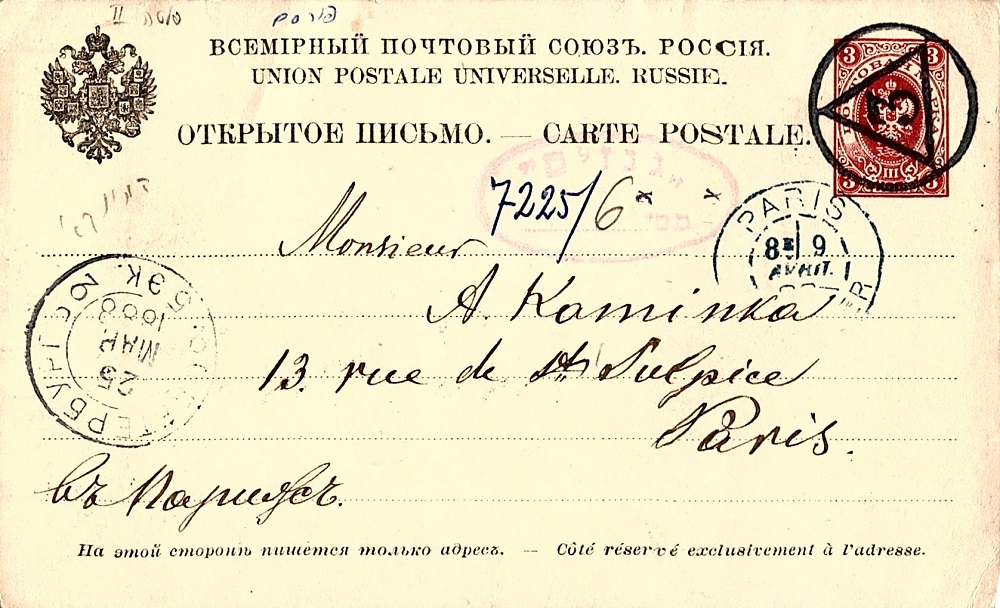 II
ВСЕМІРНЫЙ ПОЧТОВЫЙ СОЮЗЪ. РОССІЯ.
UNION POSTALE UNIVERSELLE. RUSSIE.
ОТКРЫТОЕ ПИСЬМО. — CARTE POSTALE.
3 3
3
III
3 3
7225/6 x x
PARIS
8E 9
AVRIL
Monsieur
A. Kaminka
13. rue de St Sulpice
Paris.
25
МАР.
въ Парижъ.
На этой сторонѣ пишется только адресъ. — Côté réservé exclusivement à l'adresse.